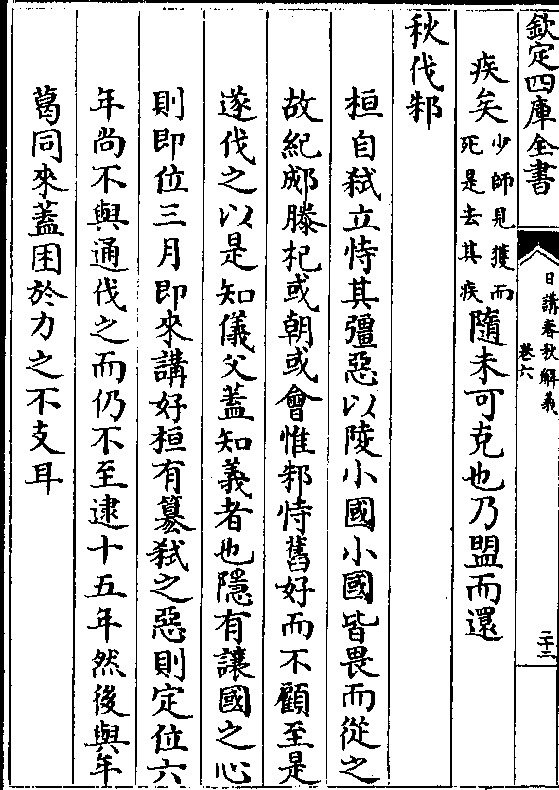 欽定四庫全書
日講春秋解義
卷六
二十三
疾矣少師見獲而死是去其疾隨未可克也乃盟而還
秋伐邾
桓自弑立恃其彊惡以陵小國小國皆畏而從之
故紀郕滕杞或朝或會惟邾恃舊好而不顧至是
遂伐之以是知儀父蓋知義者也隱有讓國之心
則即位三月即來講好桓有篡弑之惡則定位六
年尚不與通伐之而仍不至逮十五年然後與牟
葛同來蓋困於力之不支耳